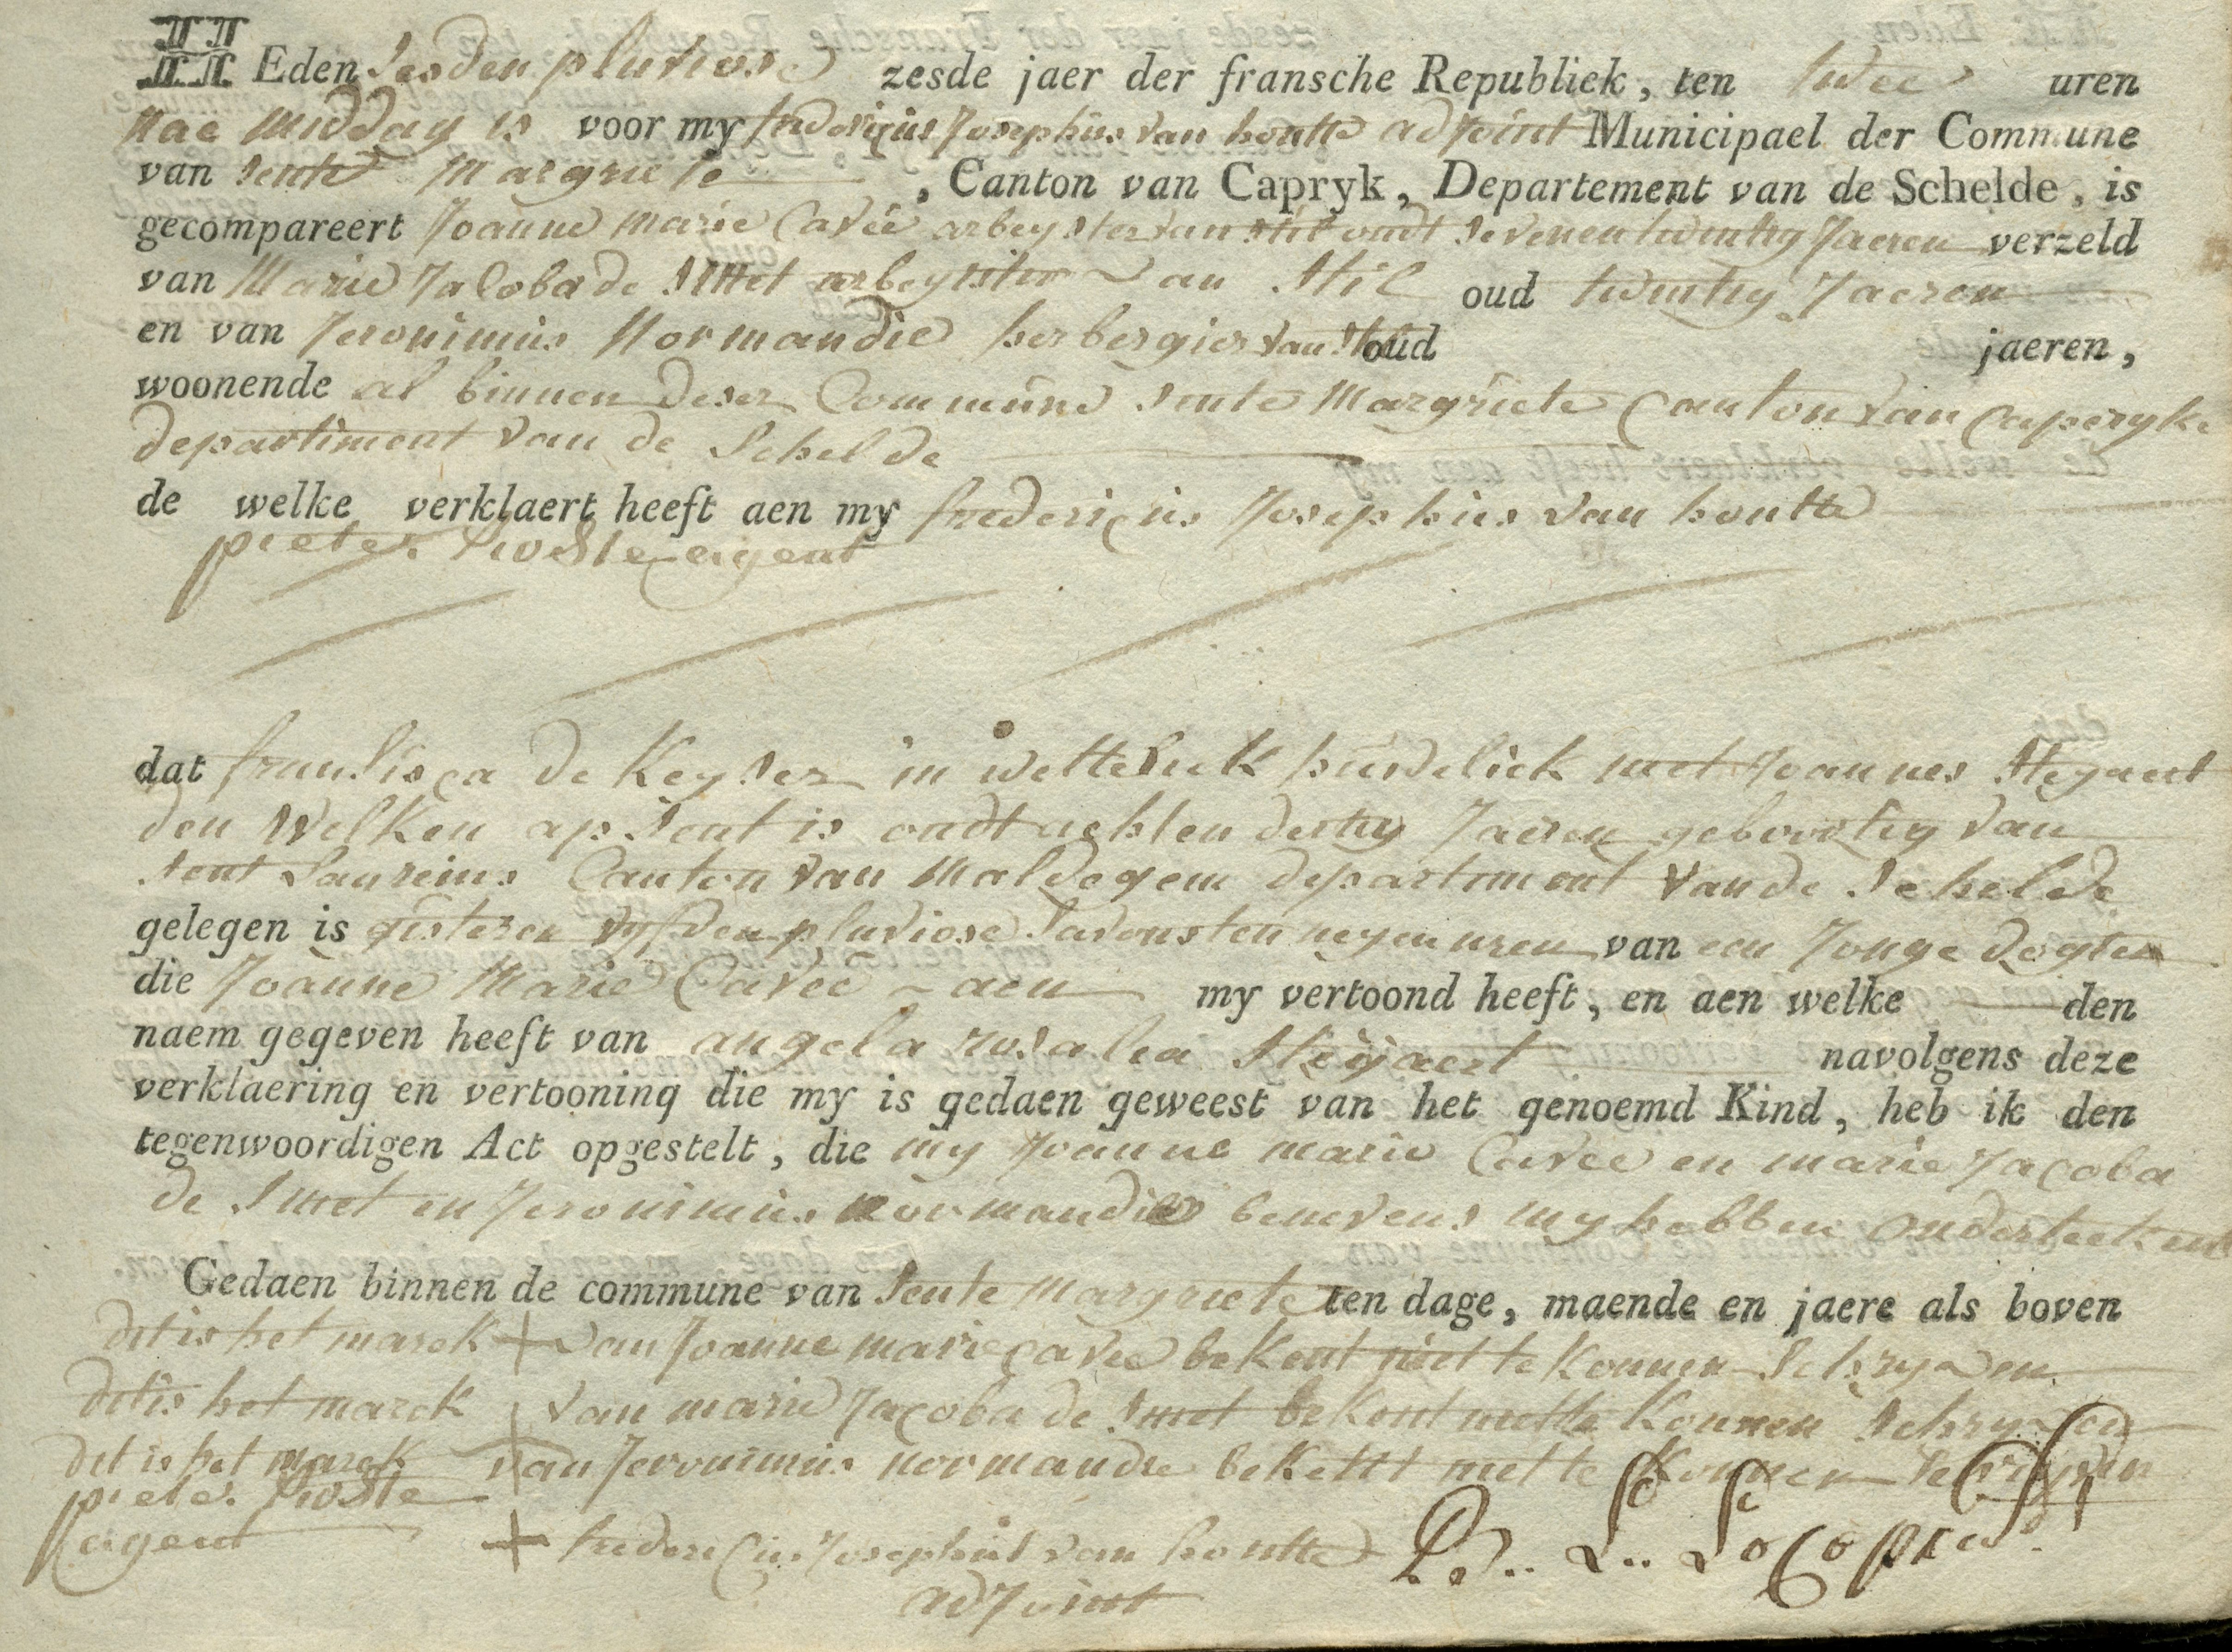 HEden Sesden pluviose zesde jaer der fransche Republiek, ten twee uren
nae middag is voor my fredericus Josephus van houtte adjoint Municipael der Commune
van Sente Margriete, Canton van Capryk, Departement van de Schelde, is
gecompareert Joanne Marie Caveé arbeyster van stil oudt sevenentwintig Jaeren verzeld
van Marie Jacoba de Smet arbeyster van stil oud twintig Jaeren
en van Jeronimus Normandie herbergier van oud jaeren,
woonende al binnen deser Commune Sente Margriete Canton van Caperyke
departiment van de Schelde
de welke verklaert heeft aen my fredericus Josephus van houtte
pieter agent
dat fransisca de Keyser in wetteliek huweliek met Joannes Steyaert
den Welken apsent is oudt achtendertig Jaeren geboortig van
sent Laureins Canton van Maldegem departement van de Schelde
gelegen is gisteren vyfden pluviose savons ten negen uren van een Jonge dogter
die Joanne Marie Caveé aen my vertoond heeft, en aen welke den
naem gegeven heeft van angela rosalea Steÿaert navolgens deze
verklaering en vertooning die my is gedaen geweest van het genoemd Kind, heb ik den
tegenwoordigen Act opgestelt, die my Joanne marie Cavee en marie Jacoba
de Smet en Jeronimus normandie benevens my hebben onderteekent
Gedaen binnen de commune van Sente Margriete ten dage, maende en jaere als boven
dit is het marck + van Joanne marie cavee bekent niet te konnen Schryven
dit is het marck + van marie Jacoba de Smet bekent niet te konnen Schryven
dit is het marck van Jeronimus normandie bekent niet te konnen Schryven
pieter
agent + fredericus Josephus van houtte
adjoint